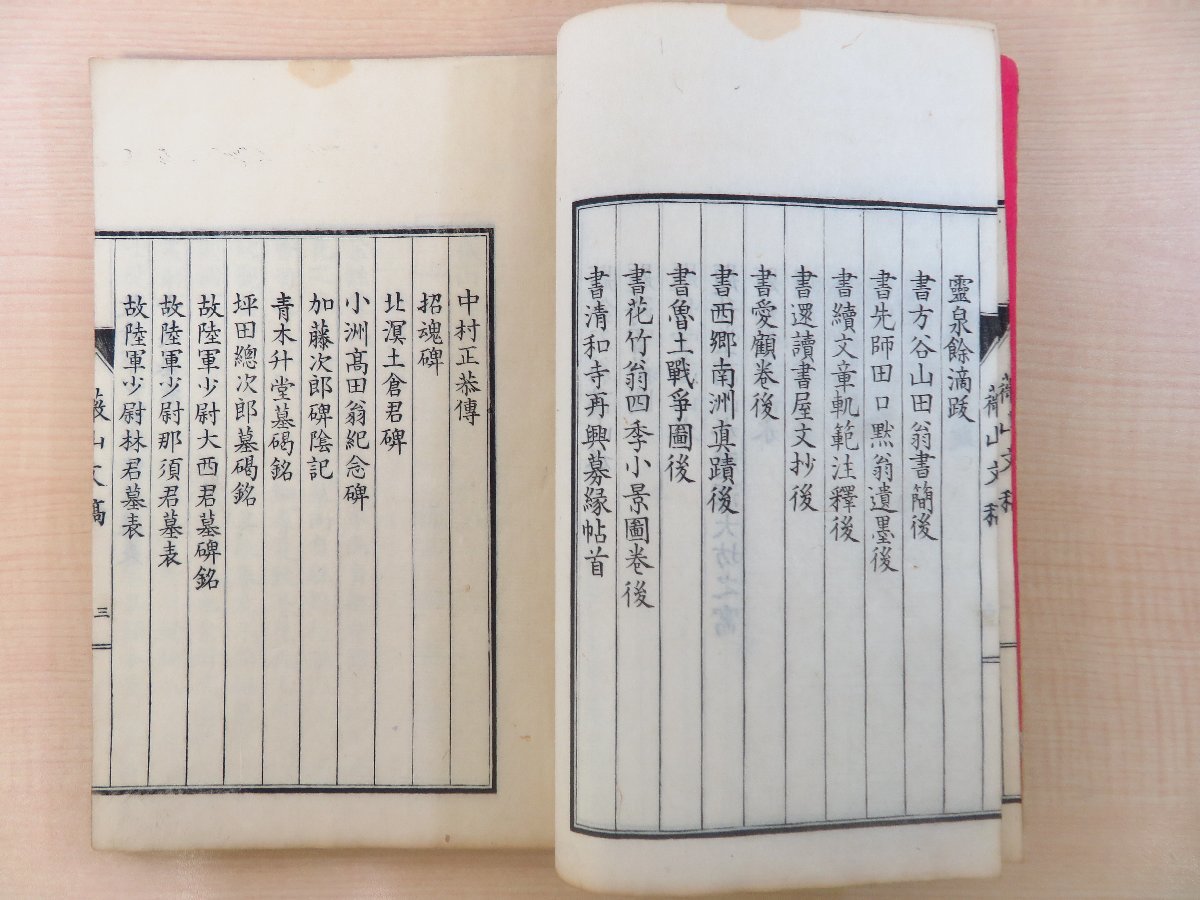 靈泉餘滴跋
書方谷山田翁書簡後
書先師田口黙翁遺墨後
書續文章軌範注釋後
書還讀書屋文抄後
書愛顧卷後
書西鄉南洲真蹟後
書魯土戰爭圖後
書花竹翁四季小景圖卷後
書清和寺再興募緣帖首
中村正恭傳
招魂碑
北溟土倉君碑
小洲髙田翁紀念碑
加藤次郎碑陰記
青木升堂墓碣銘
坪田總次郎墓碣銘
故陸軍少尉大西君墓碑銘
故陸軍少尉那須君墓表
故陸軍少尉林君墓表
三